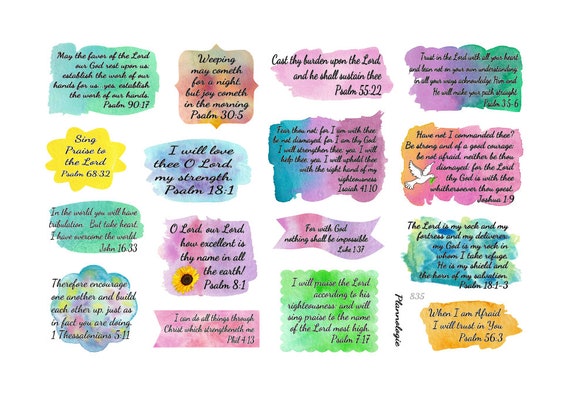 May the favor of the Lord
our God rest upon us:
establish the work of our
hands for us. yes, establish
the work of our hands.
Psalm 90:17
Weeping
may cometh
for a night,
but joy cometh
in the morning
Psalm 30:5
Cast thy burden upon the Lord
and he shall sustain thee
Psalm 55:22
Trust in the Lord with all your heart
and lean not on your own understanding
in all your ways acknowledge Him and
He will make your path straight.
Psalm 3:5-6
Sing
Praise to
the Lord
Psalm 68:32
I will love
thee O Lord,
my strength.
Psalm 18:1
Fear thou not; for I am with thee:
be not dismayed; for I am thy God:
I will strengthen thee; yea, I will
help thee; yea, I will uphold thee
with the right hand of my
righteousness
Isaiah 41:10
Have not I commanded thee?
Be strong and of a good courage;
be not afraid, neither be thou
dismayed: for the Lord
thy God is with thee
whithersoever thou goest.
Joshua 1:9
In the world you will have
tribulation. But take heart;
I have overcome the world.
John 16:33
O Lord, our Lord,
how excellent is
thy name in all
the earth!
Psalm 8:1
For with God
nothing shall be impossible
Luke 1:37
The Lord is my rock and my
fortress and my deliverer,
my God is my rock in
whom I take refuge.
He is my shield and
the horn of my salvation.
Psalm 18:1-3
Therefore encourage
one another and build
each other up, just as
in fact you are doing.
1 Thessalonians 5:11
I can do all things through
Christ which strengtheneth me
Phil 4:13
I will praise the Lord
according to his
righteousness: and will
sing praise to the name
of the Lord most high.
Psalm 7:17
835
Plannologie
When I am Afraid
I will trust in You
Psalm 56:3